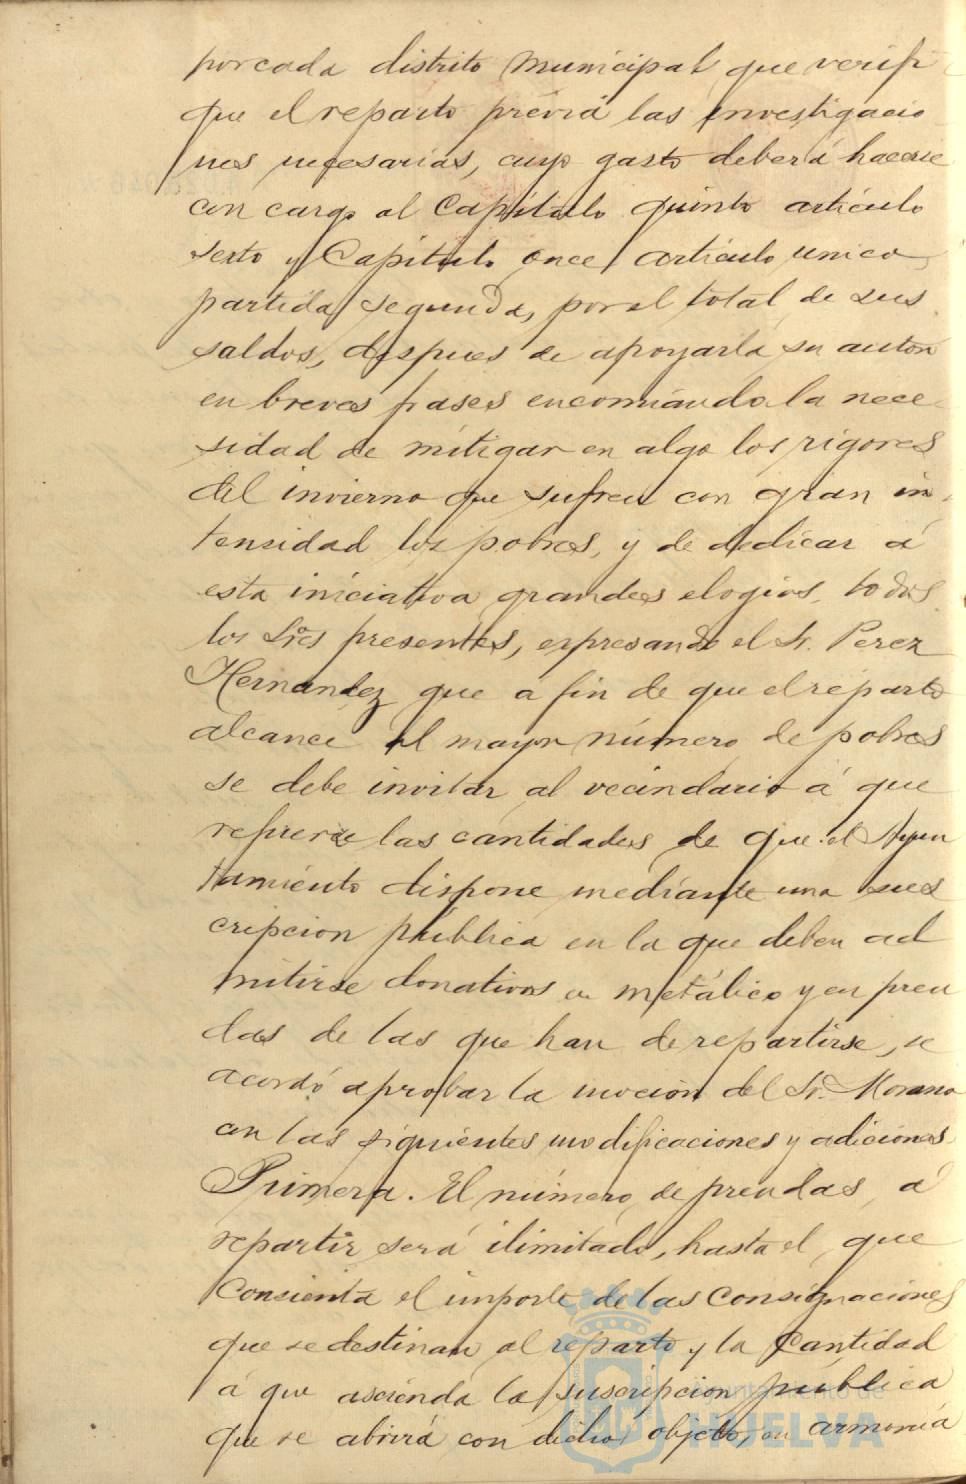 por cada distrito Municipal que verifi
que el reparto prévia las investigacio
nes necesarias, cuyo gasto deberá hacerse
con cargo al Capítulo quinto artículo
sexto y Capítulo once artículo unico
partida segunda, por el total de sus
saldos, despues de apoyarla su autor
en breves frases encomiando la nece
sidad de mitigar en algo los rigores
del invierno que sufren con gran in
tensidad los pobres, y de dedicar á
esta iniciativa grandes elogios todos
los Sres presentes, expresando el Sr. Perez
Hernandez que a fin de que el reparto
alcance al mayor número de pobres
se debe invitar al vecindario á que
refuerze las cantidades de que el Ayun
tamiento dispone mediante una sus
cripcion pública en la que deben ad
mitirse donativos en metálico y en pren
das de las que han de repartirse, se
acordó aprobar la mocion del Sr. Morano
con las siguientes modificaciones y adiciones
Primera. El número de prendas á
repartir será ilimitado, hasta el que
consienta el importe de las consignaciones
que se destinan al reparto y la cantidad
á que ascienda la suscripcion pública
que se abrirá con dicho objeto, en armonía
Ayuntamiento de
HUELVA